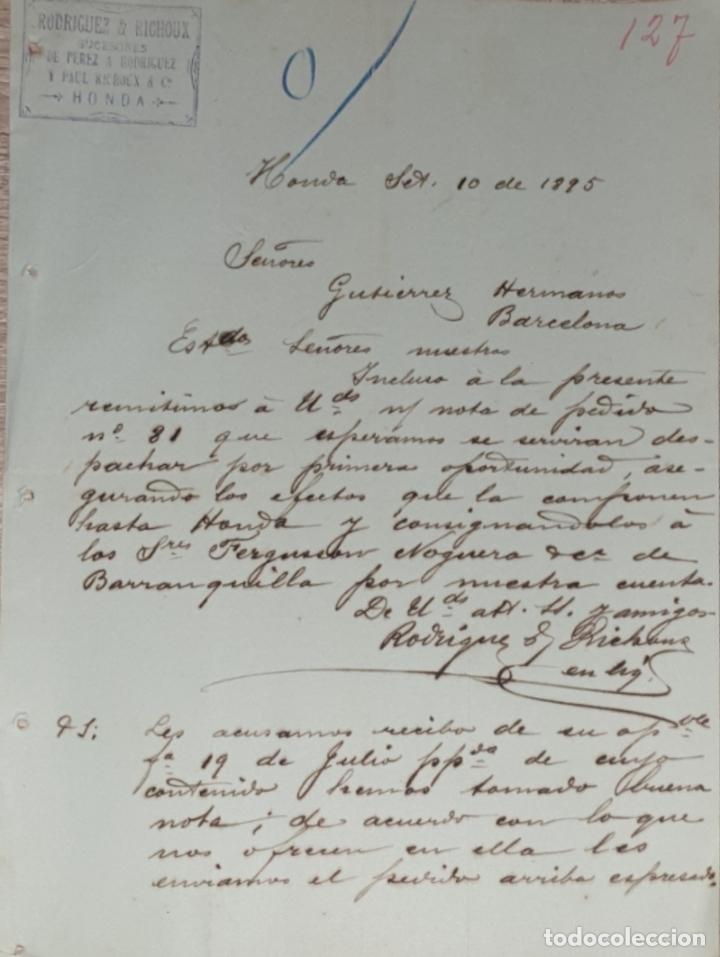 RODRIGUEZ & RICHOUX
SUCESORES
DE PEREZ & RODRIGUEZ
Y PAUL RICHOUX & Cº
HONDA
127
0
Honda Set. 10 de 1895
Señores
Gutierrez Hermanos
Barcelona
Estdos Señores nuestros
Incluso à la presente
remitimos à Uds n/ nota de pedido
nº 81 que esperamos se serviran des-
pachar por primera oportunidad, ase-
gurando los efectos que la componen
hasta Honda y consignandolos à
los Sres Fergusson Noguera & Cª de
Barranquilla por nuestra cuenta.
De Uds att. SS. y amigos
Rodriguez & Richoux
en liq.
Les acusamos recibo de su apble
fa 19 de Julio ppdo de cuyo
contenido hemos tomado buena
nota; de acuerdo con lo que
nos ofrecen en ella les
enviamos el pedido arriba espresado.
todocoleccion